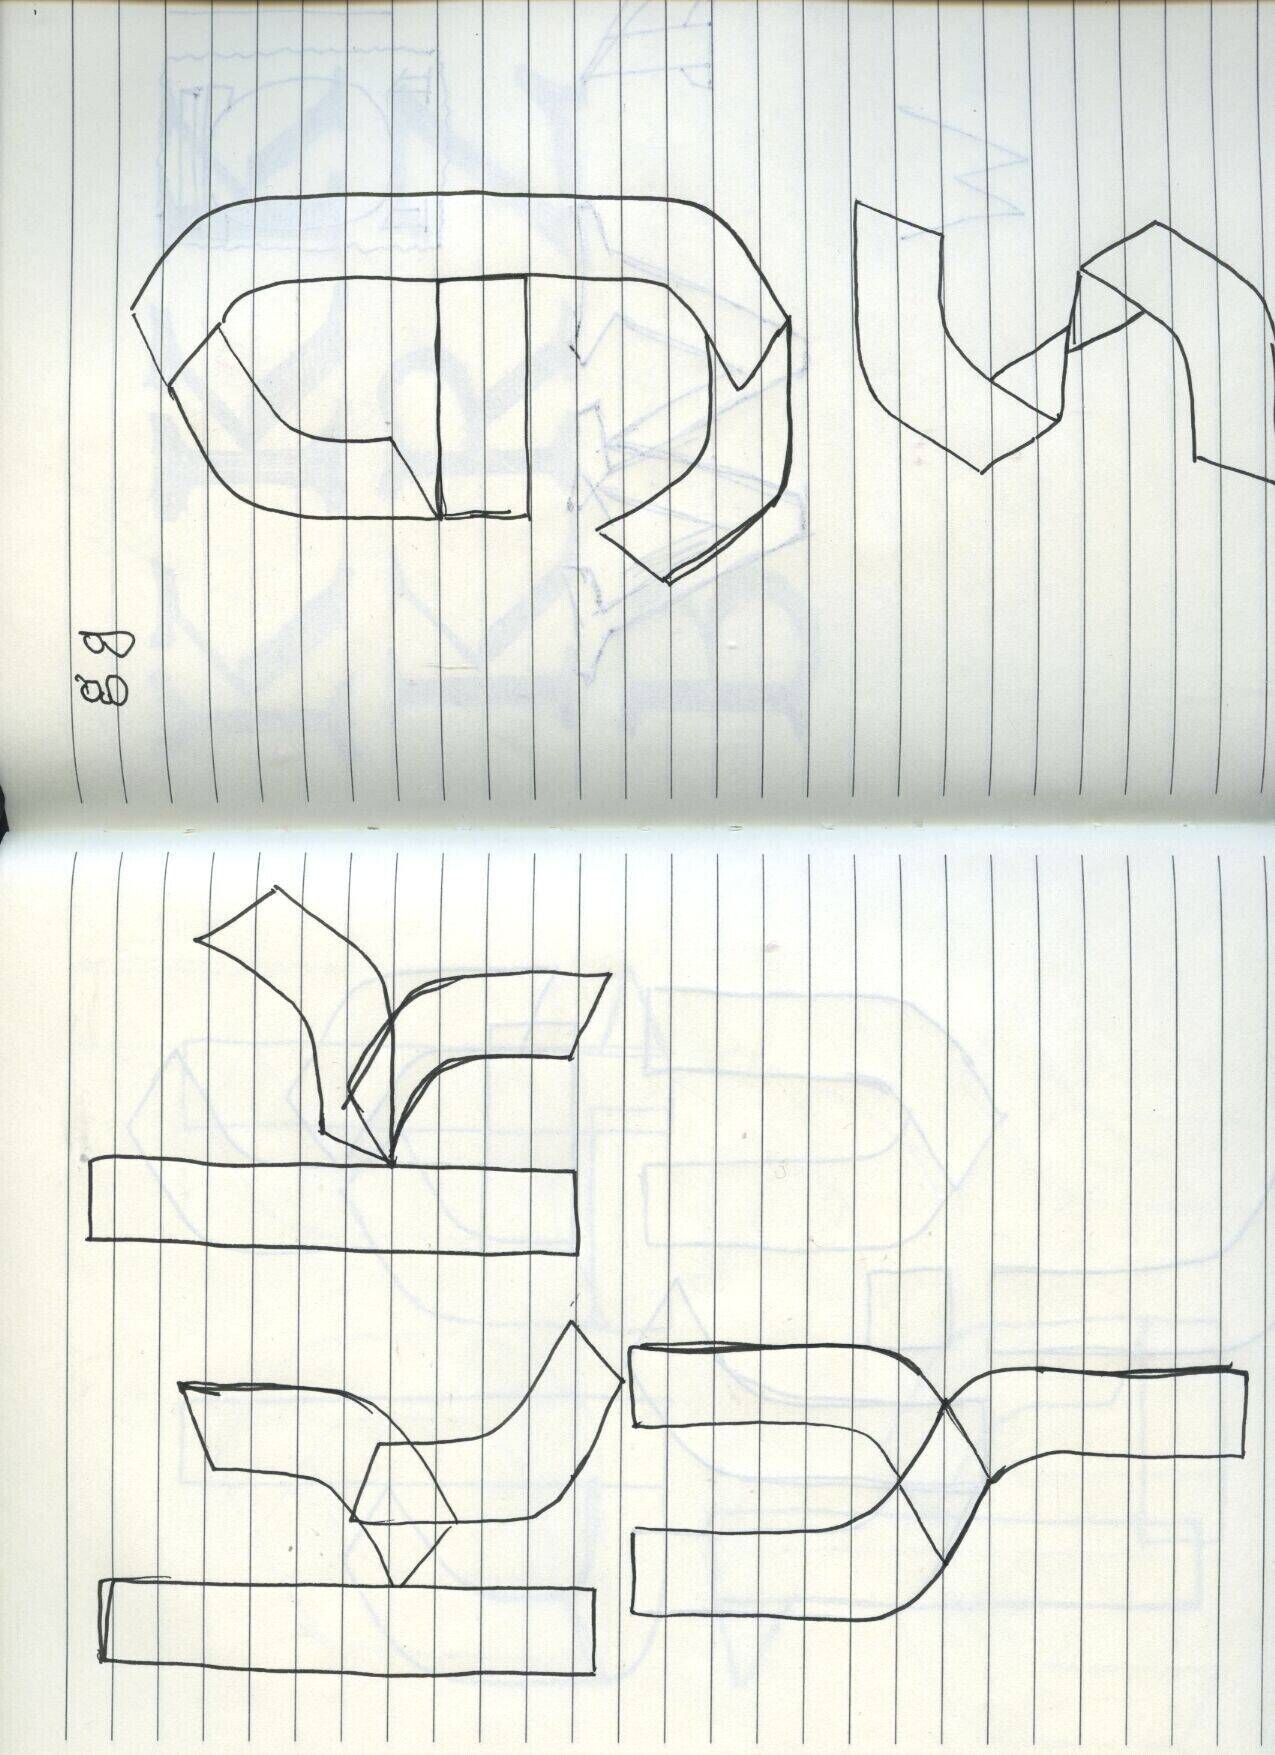 k k
y
g g
g
s